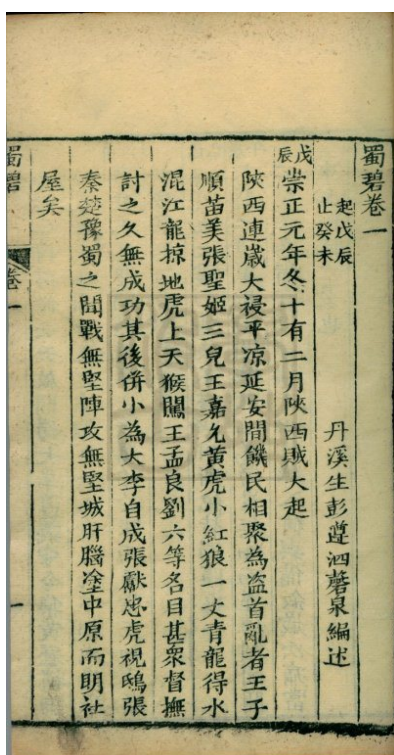 蜀碧卷一
起戊辰
止癸未
丹溪生彭遵泗磬泉編述
戊辰崇正元年冬十有二月陝西賊大起
陝西連歲大祲平凉延安間饑民相聚為盗首亂者王子
順苗美張聖姬三兒王嘉允黃虎小紅狼一丈青龍得水
混江龍掠地虎上天猴闖王孟良劉六等名目甚衆督撫
討之久無成功其後併小為大李自成張獻忠虎視鴟張
秦楚豫蜀之間戰無堅陣攻無堅城肝腦塗中原而明社
屋矣
蜀碧
卷一
一